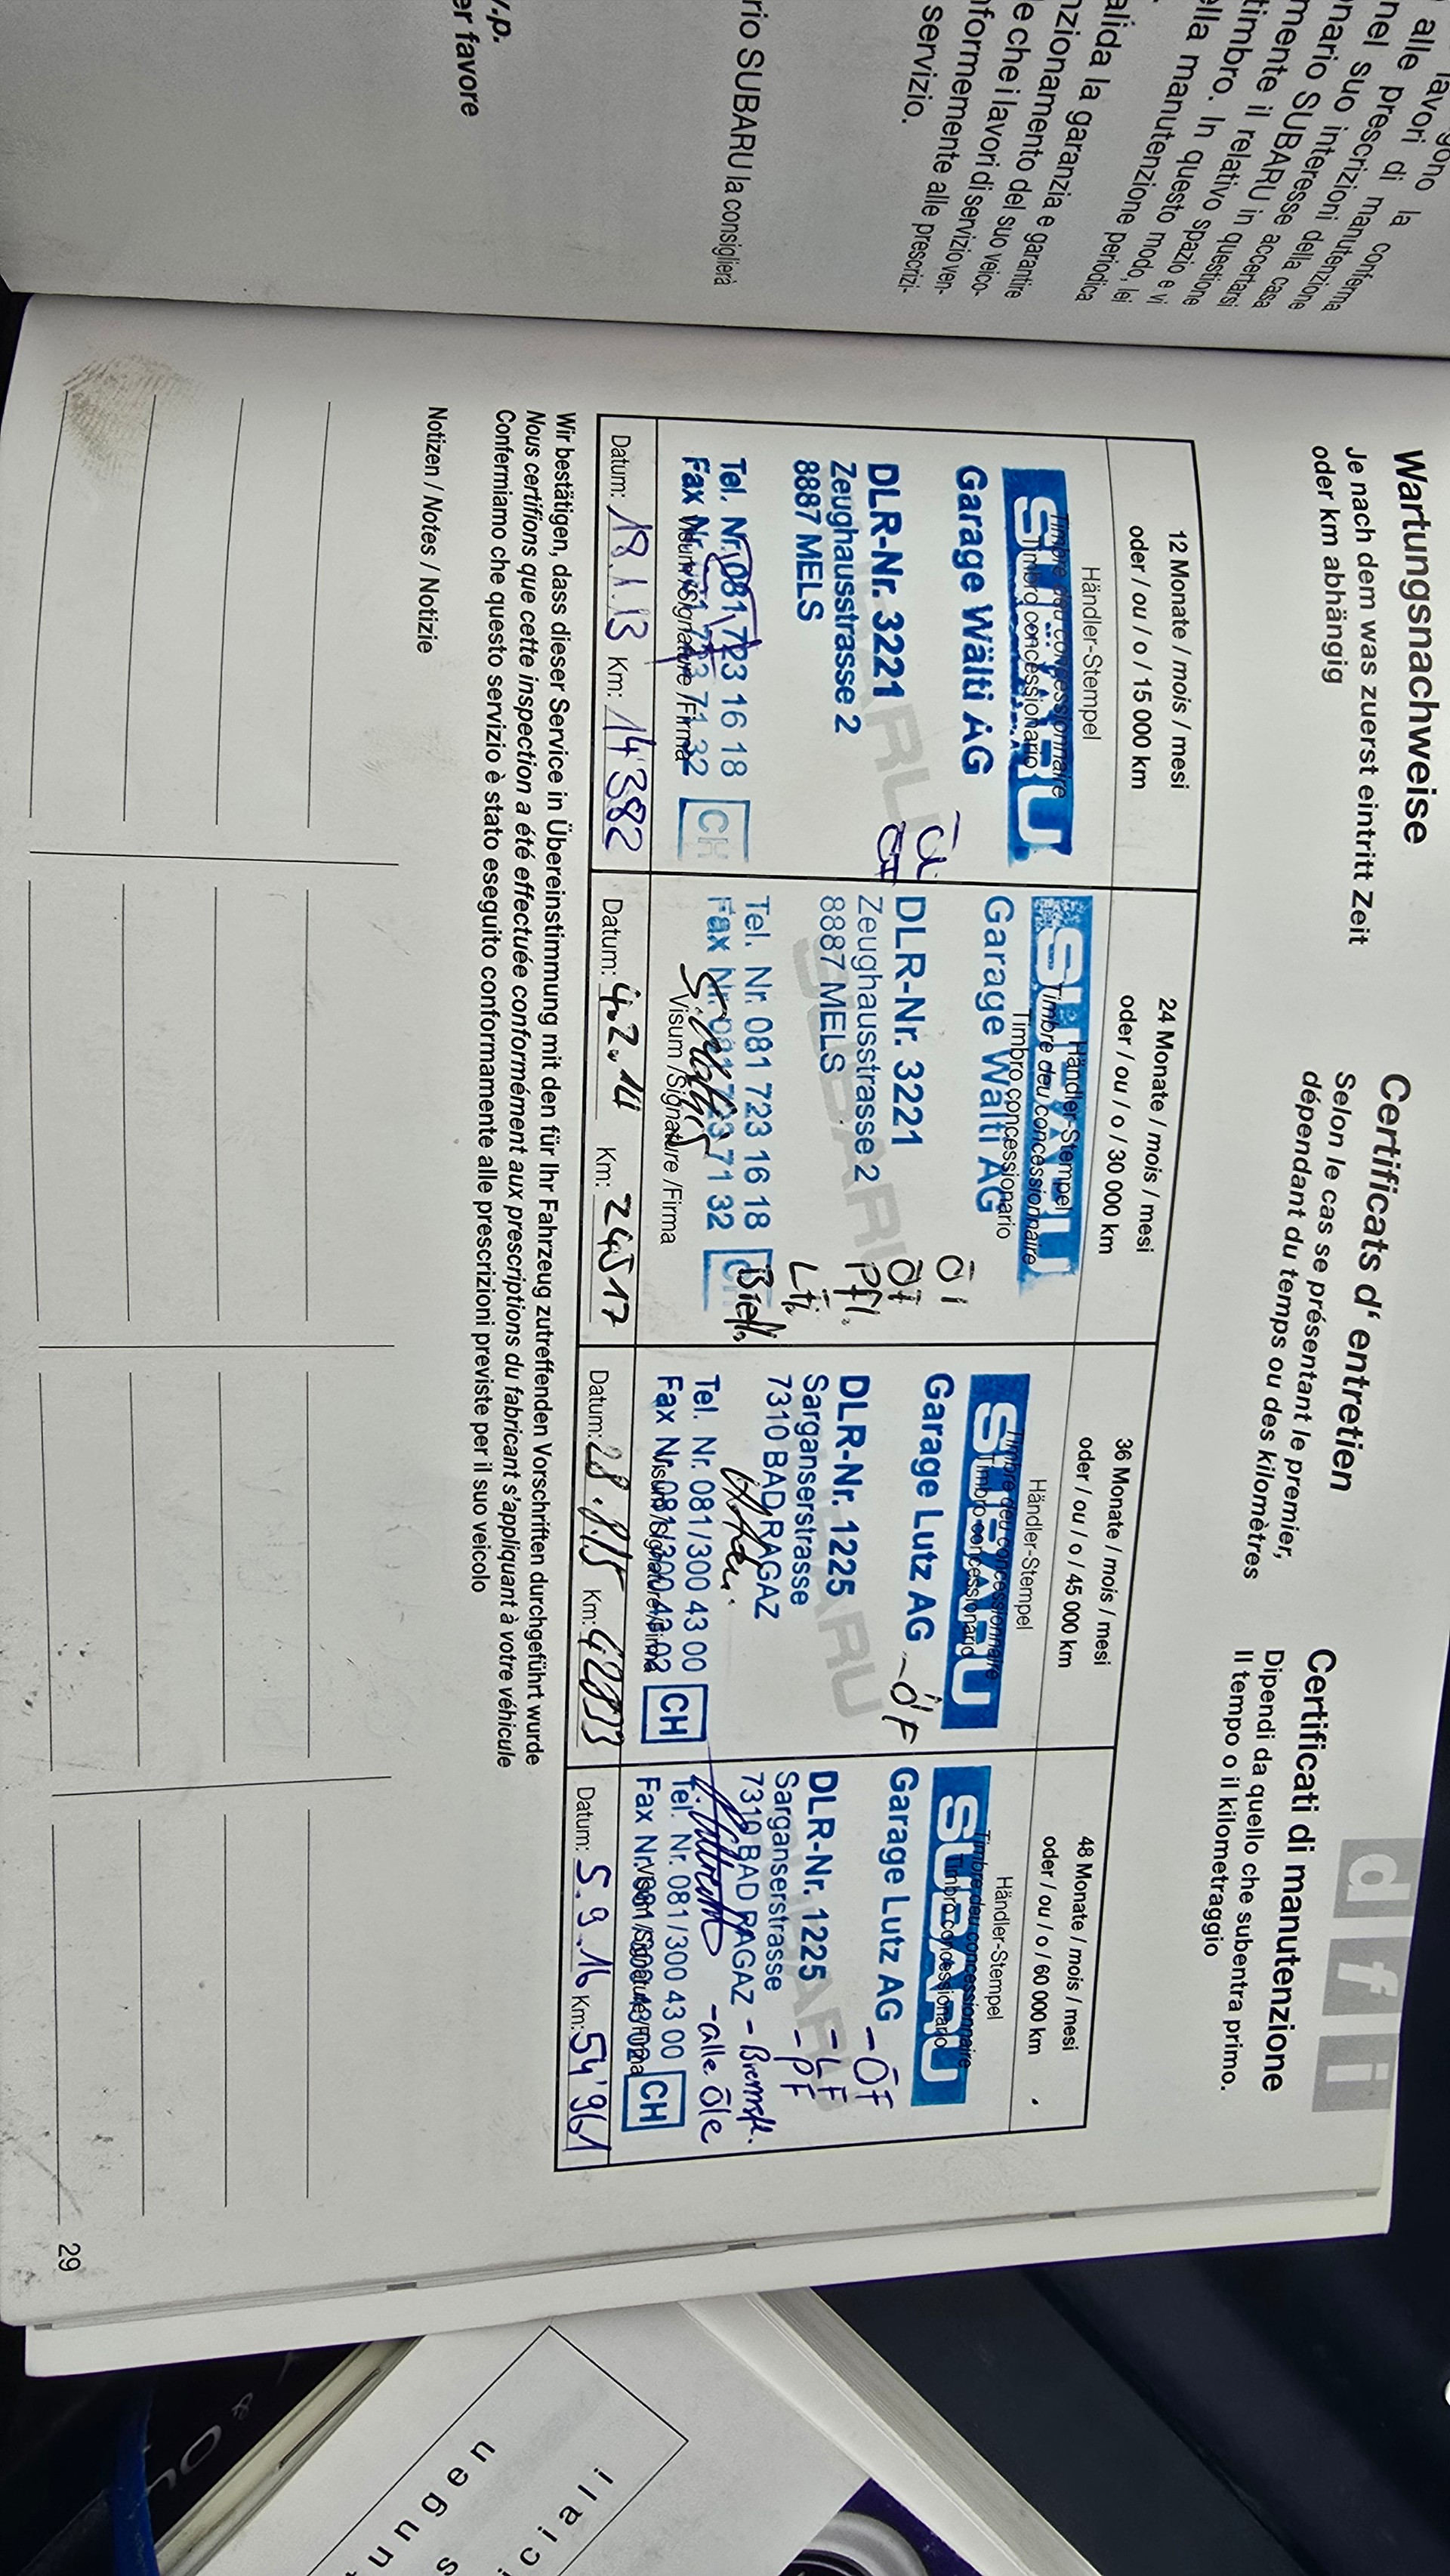 alle prescrizioni
lavori di manutenzione
nel suo interesse della casa
SUBARU in questione
timbro. In questo modo, lei
ella manutenzione periodica
alida la garanzia e garantire
nzionamento del suo veico-
e che i lavori di servizio ven-
formemente alle prescrizi-
servizio.
rio SUBARU la consiglierà
v.p.
er favore
Wartungsnachweise
Je nach dem was zuerst eintritt Zeit
oder km abhängig
Certificats d' entretien
Selon le cas se présentant le premier,
dépendant du temps ou des kilomètres
Certificati di manutenzione
Dipendi da quello che subentra primo.
Il tempo o il kilometraggio
d f i
12 Monate / mois / mesi
oder / ou / o / 15 000 km
Händler-Stempel
Timbre deu concessionnaire
Timbro concessionario
SUBARU
Garage Wälti AG
DLR-Nr. 3221
Zeughausstrasse 2
8887 MELS
Tel. Nr. 081 723 16 18
Fax Nr. 081 723 71 32
CH
Visum /Signature /Firma
Datum: 18.1.13 Km: 14'382
24 Monate / mois / mesi
oder / ou / o / 30 000 km
Händler-Stempel
Timbre deu concessionnaire
Timbro concessionario
SUBARU
Garage Wälti AG
DLR-Nr. 3221
Zeughausstrasse 2
8887 MELS
Tel. Nr. 081 723 16 18
Fax Nr. 081 723 71 32
Öl
Öf
Pfl.
Lfi.
Visum /Signature /Firma
Datum: 4.2.14 Km: 24517
36 Monate / mois / mesi
oder / ou / o / 45 000 km
Händler-Stempel
Timbre deu concessionnaire
Timbro concessionario
SUBARU
Garage Lutz AG
- ÖF
DLR-Nr. 1225
Sarganserstrasse
7310 BAD RAGAZ
Tel. Nr. 081/300 43 00
Fax Nr. 081/300 43 02
CH
Visum /Signature /Firma
Datum: 28.8.15 Km:
48 Monate / mois / mesi
oder / ou / o / 60 000 km
Händler-Stempel
Timbre deu concessionnaire
Timbro concessionario
SUBARU
Garage Lutz AG
- ÖF
- LF
- PF
DLR-Nr. 1225
Sarganserstrasse
7310 BAD RAGAZ
- Bremsfl.
- alle Öle
Tel. Nr. 081/300 43 00
Fax Nr. 081/300 43 02
CH
Visum /Signature /Firma
Datum: 5.9.16 Km: 54'961
Wir bestätigen, dass dieser Service in Übereinstimmung mit den für Ihr Fahrzeug zutreffenden Vorschriften durchgeführt wurde
Nous certifions que cette inspection a été effectuée conformément aux prescriptions du fabricant s'appliquant à votre véhicule
Confermiamo che questo servizio è stato eseguito conformamente alle prescrizioni previste per il suo veicolo
Notizen / Notes / Notizie
29
tungen
s
ciali